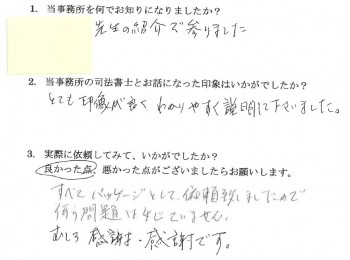 1. 当事務所を何でお知りになりましたか?
先生の紹介で参りました
2. 当事務所の司法書士とお話になった印象はいかがでしたか?
とても印象が良く わかりやすく説明して下さいました。
3. 実際に依頼してみて、いかがでしたか?
良かった点、悪かった点がございましたらお願いします。
すべてパッケージとして、依頼致しましたので
何ら問題は生じていません。
むしろ感謝・感謝です。